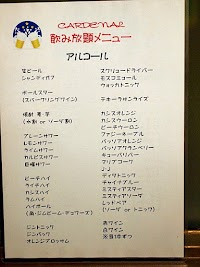 CARDENAL
飲み放題メニュー
アルコール
生ビール
シャンディガフ
ポールスター
(スパークリングワイン)
焼酎 麦・芋
(水割 or ソーダ割)
グレーンサワー
レモンサワー
ライムサワー
カルピスサワー
巨峰サワー
ピーチハイ
ライチハイ
カシスハイ
ラムハイ
ハイボール
ジントニック
ジンバック
オレンジブロッサム
スクリュードライバー
モスコミュール
ウォッカトニック
テキーラサンライズ
カシスオレンジ
カシスウーロン
ピーチウーロン
ファジーネーブル
パッソアオレンジ
パッソアグランベリー
キューバリバー
マリブコーク
J・J
ディタトニック
チャイナブルー
ミスティアスター
ミスティアソーダ
レッドベア
(ソーダ or トニック)
赤ワイン
白ワイン